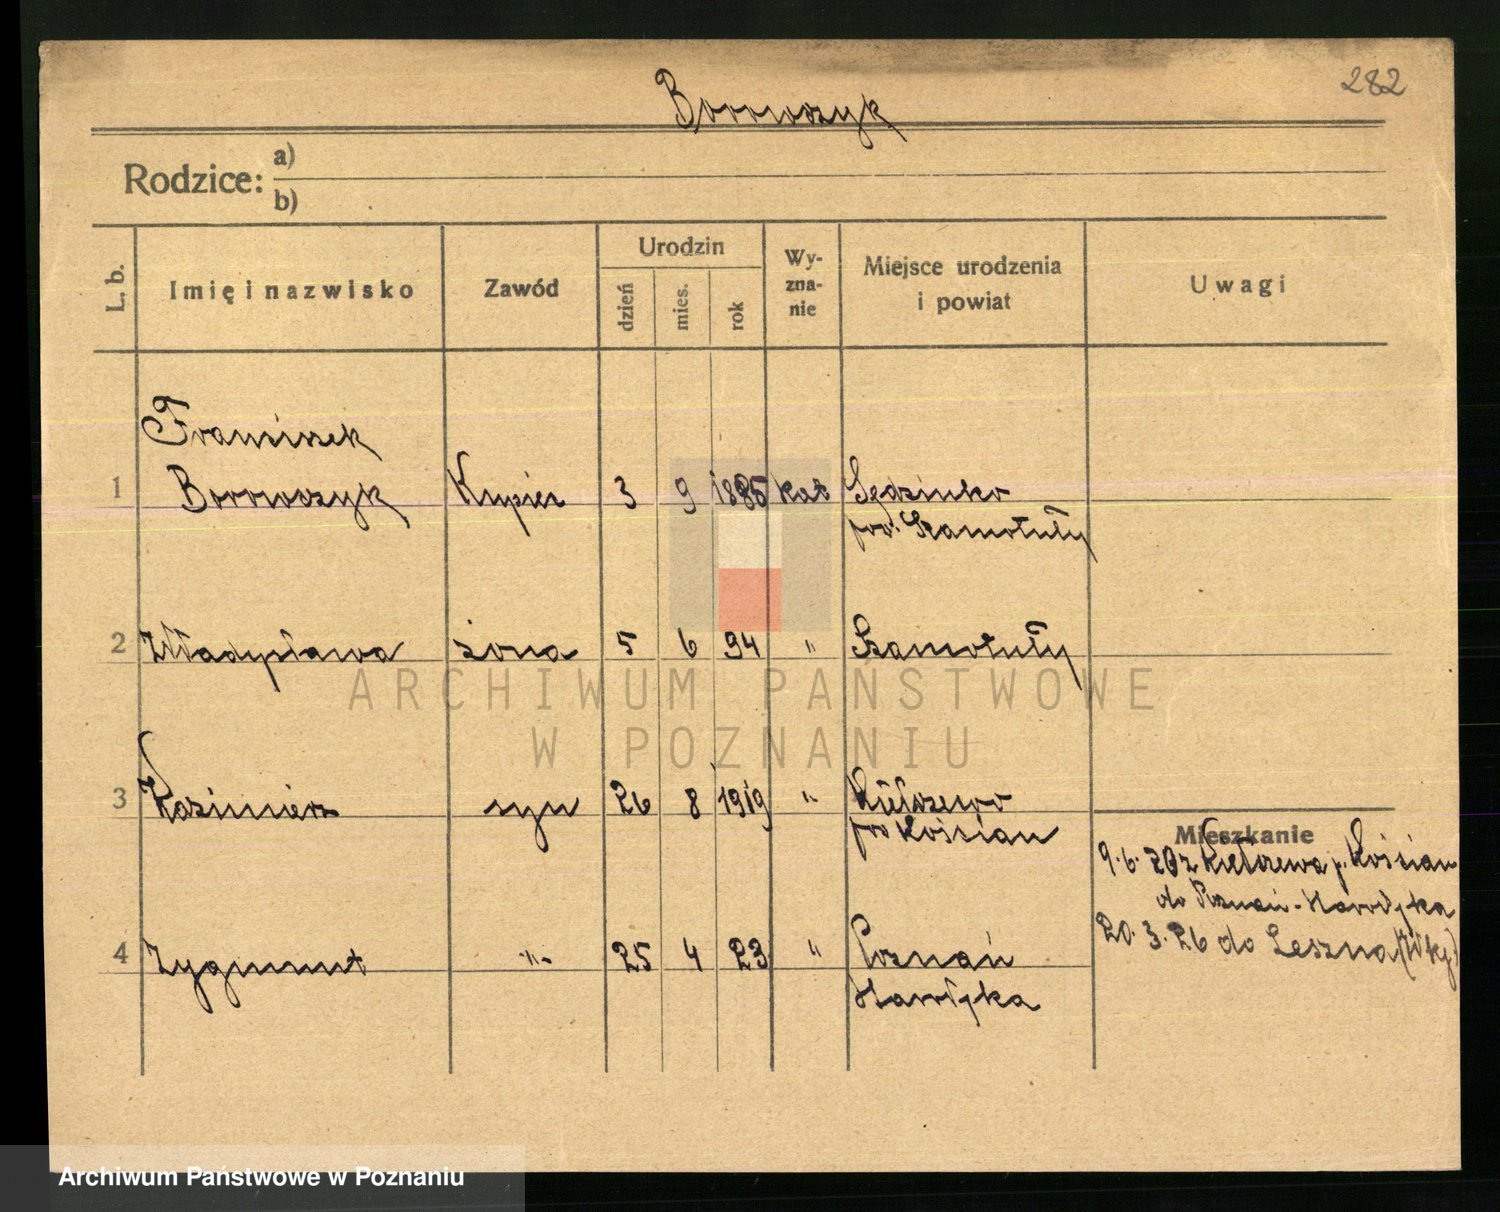 282
Borowczyk
Rodzice: a)
b)
L. b. Imię i nazwisko Zawód Urodzin dzień mies. rok Wy-zna-nie Miejsce urodzenia i powiat Uwagi
Franciszek
1 Borowczyk Kupiec 3 9 1885 kat Sędzinko
pow. Szamotuły
2 Władysława żona 5 6 94 " Szamotuły
3 Kazimierz syn 26 8 1919 " Kiełczewo
pow Kościan
Mieszkanie
9. 6. 20 z Kiełczewa p. Kościan
do Poznań-
20. 3. 26 do Leszna
4 Zygmunt -"- 25 4 23 " Poznań
ARCHIWUM PAŃSTWOWE
W POZNANIU
Archiwum Państwowe w Poznaniu